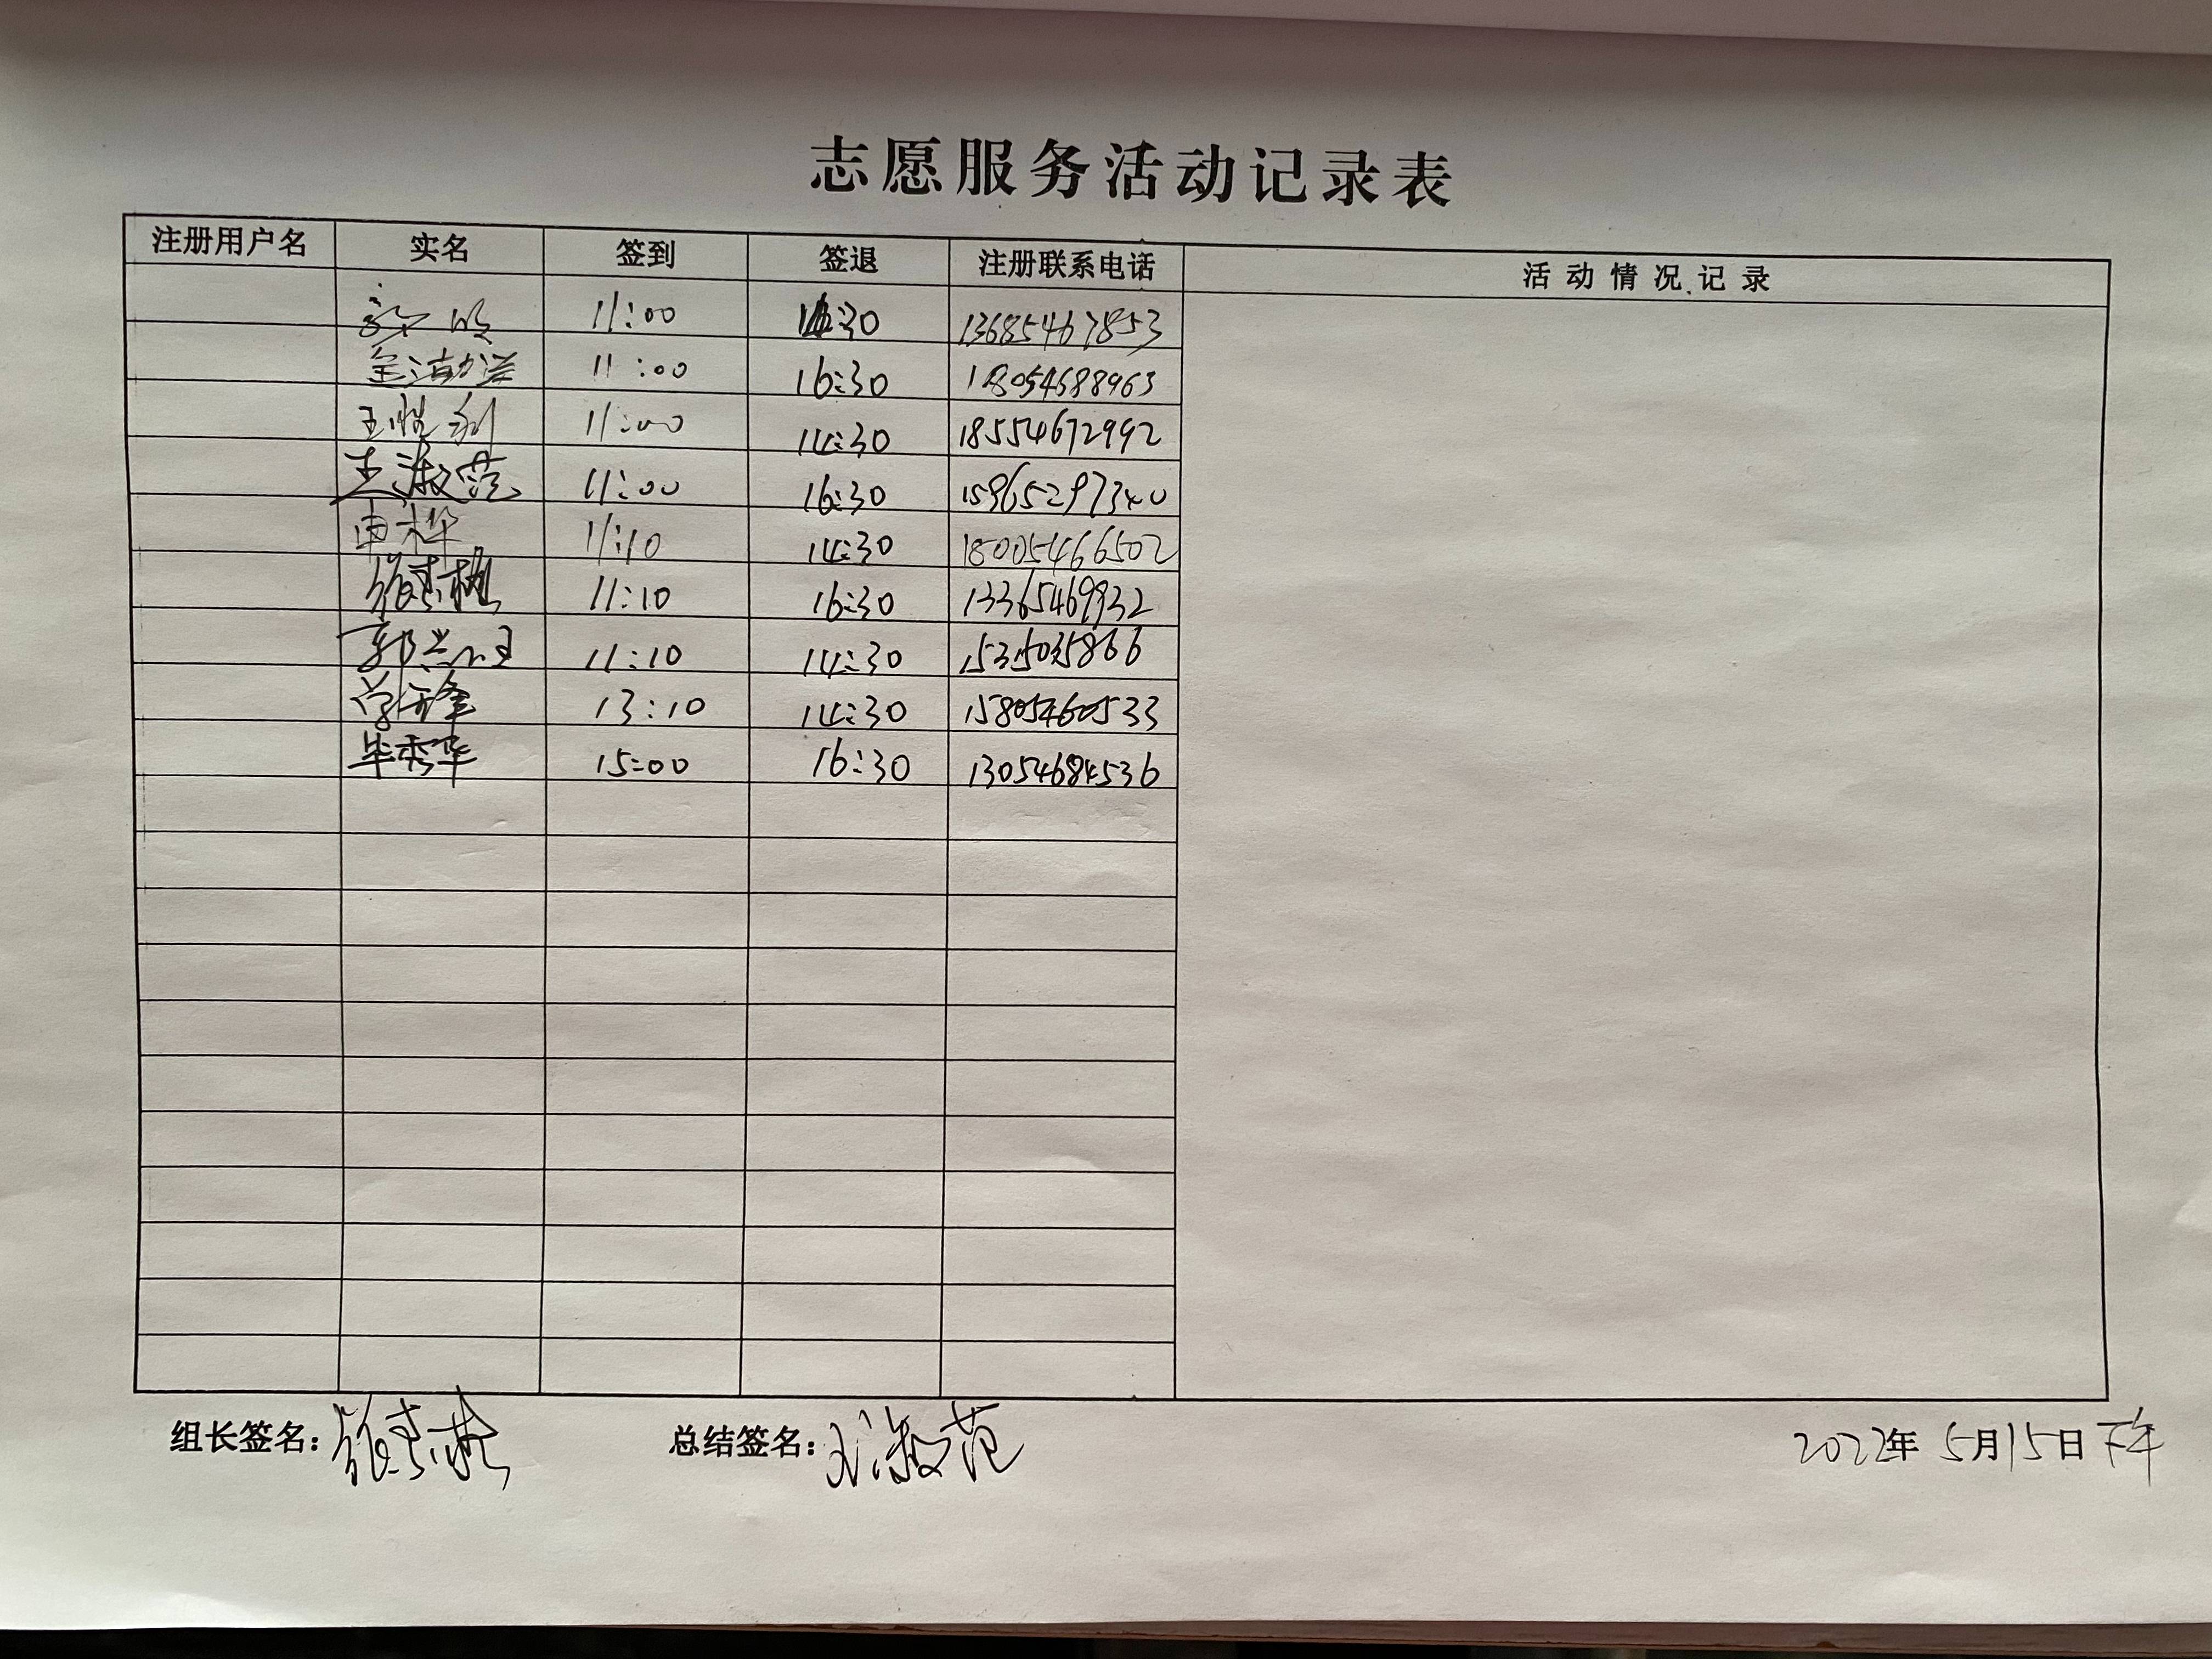 志愿服务活动记录表
注册用户名 实名 签到 签退 注册联系电话 活动情况记录
11:00 13685467853
11:00 16:30 18054688963
11:00 14:30 18554672992
王淑范 11:00 16:30 15965297340
申桦 11:10 14:30 18005466502
11:10 16:30 13365469932
11:10 14:30
13:10 14:30 15805460533
毕秀华 15:00 16:30 13054684536
组长签名: 总结签名:王淑范 2022年5月15日下午